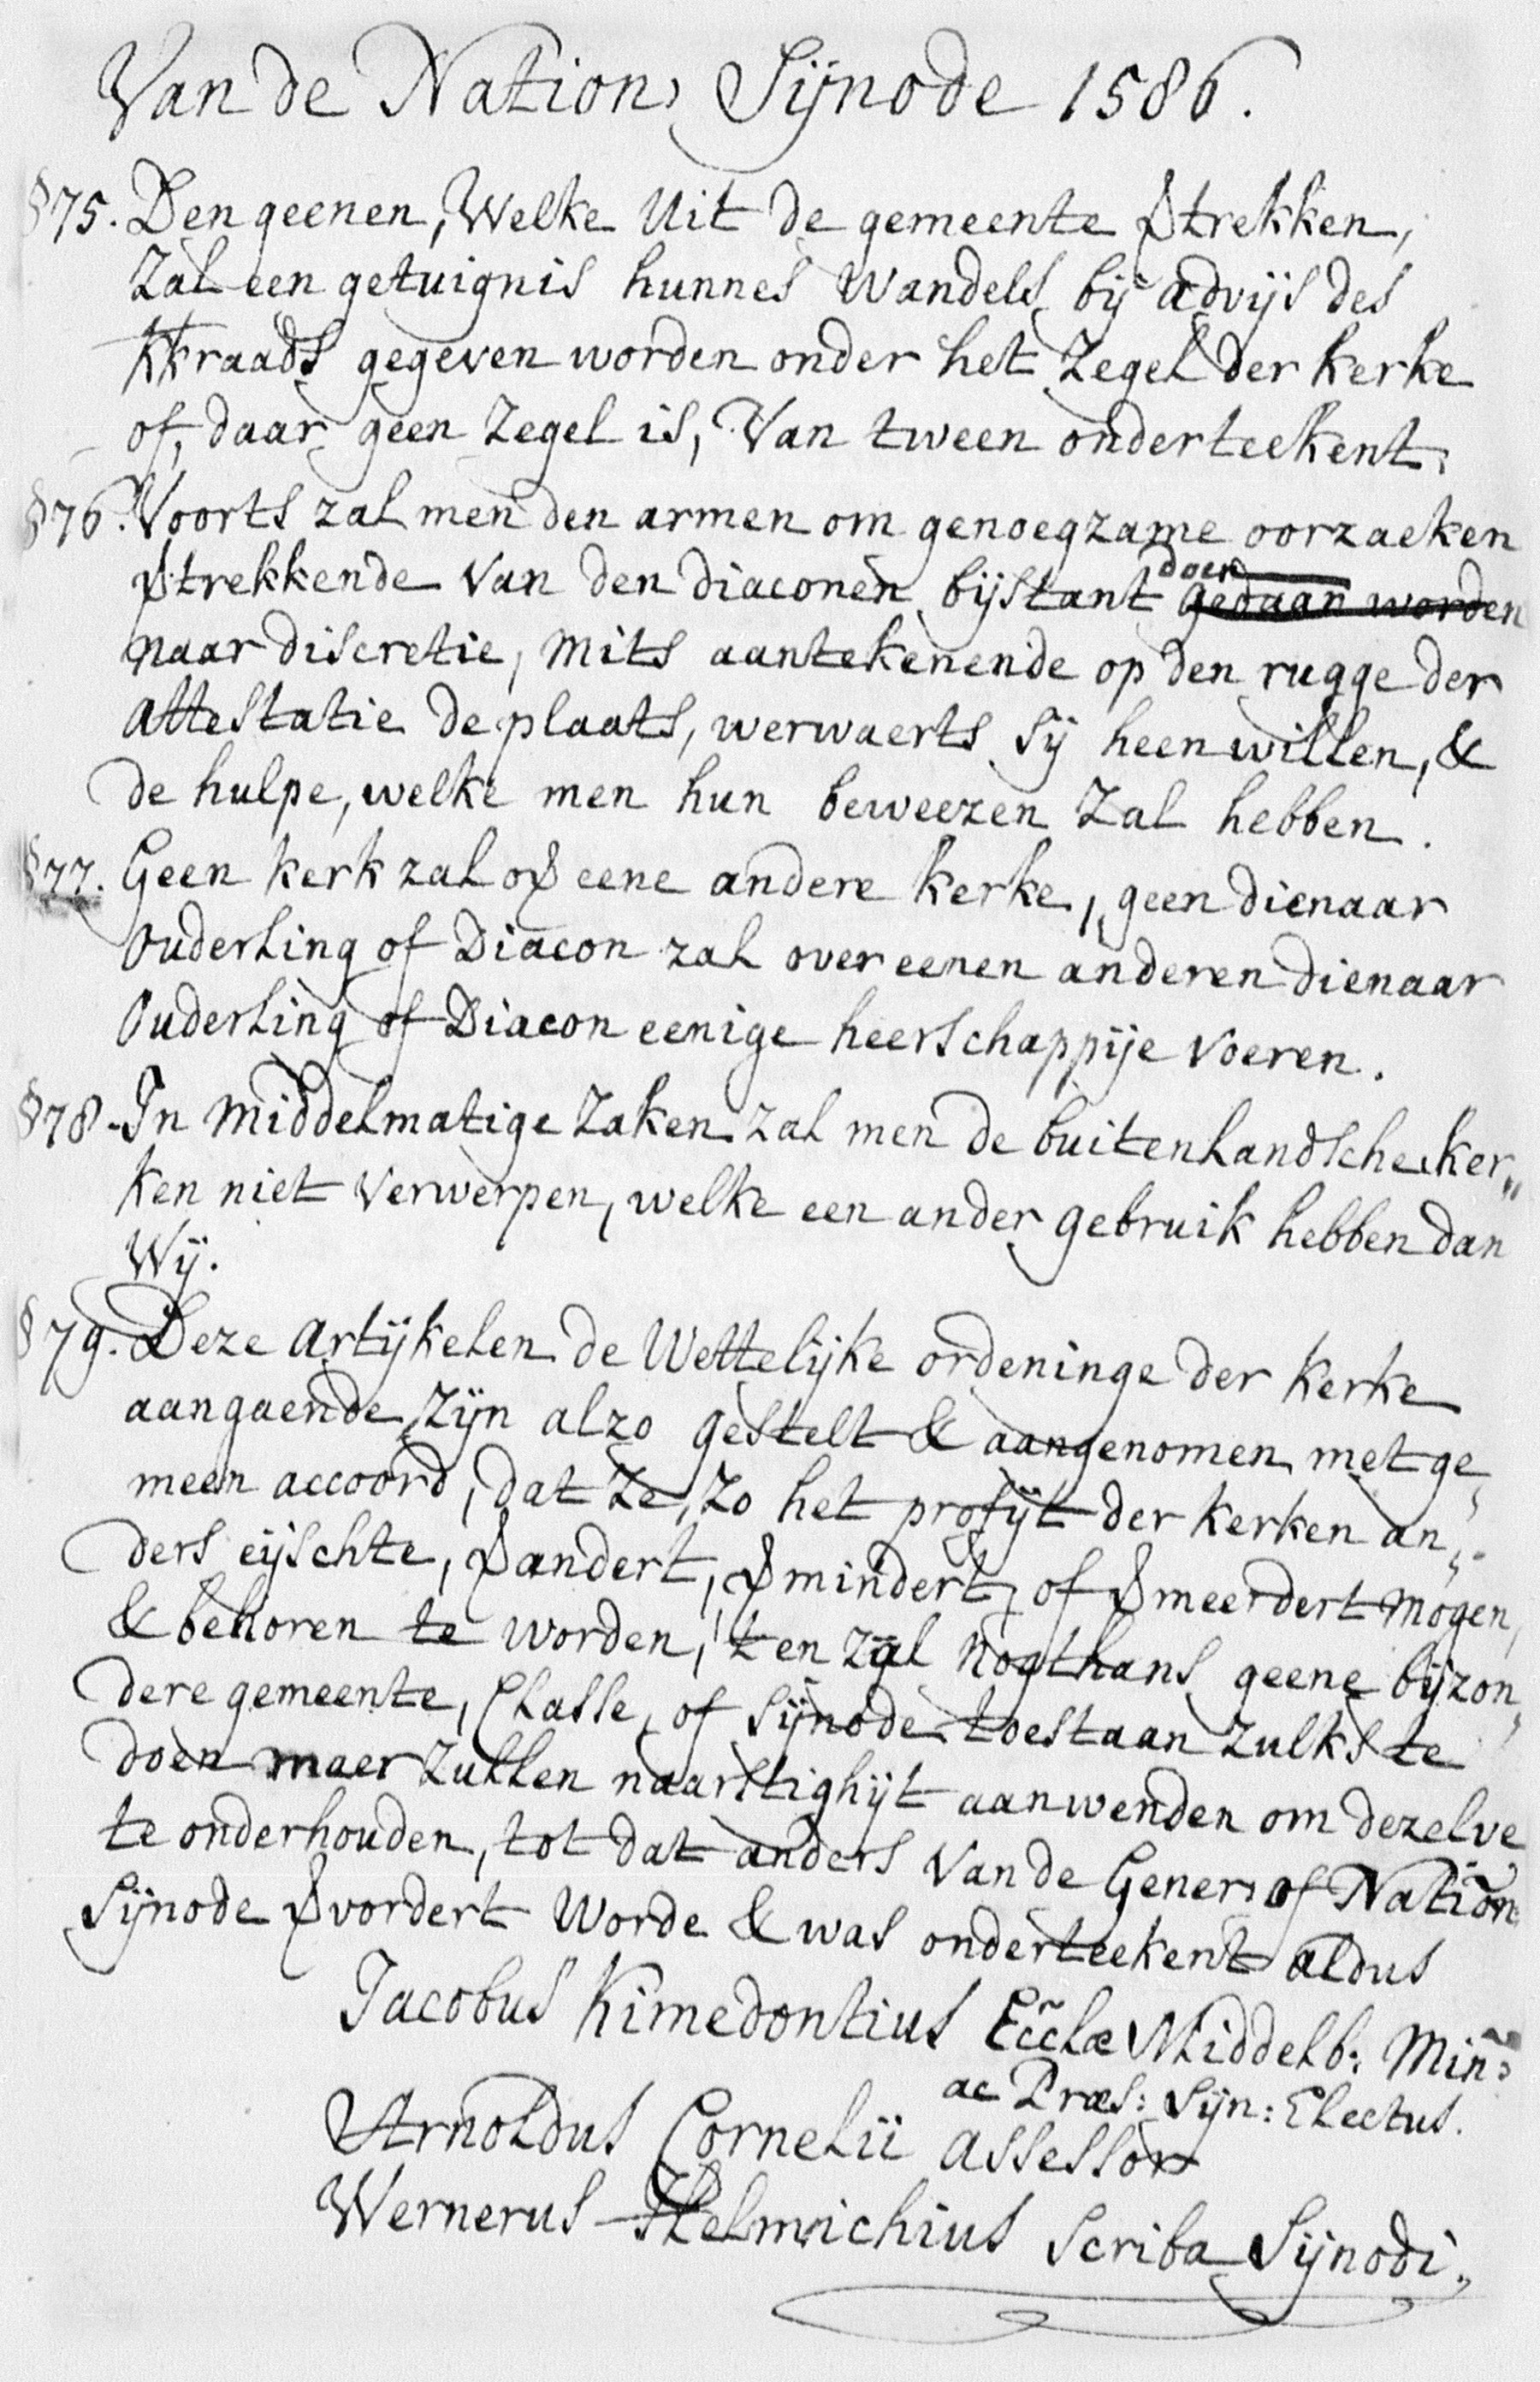 Van de Nation: Sijnode 1586.
§75. Den geenen, Welke Uit de gemeente ꝟtrekken,
Zal een getuignis hunnes Wandels bij advijs des
Kkraads gegeven worden onder het Zegel der kerke
of, daar geen Zegel is, Van tween onderteekent.
§76. Voorts zal men den armen om genoegzame oorzaeken
ꝟtrekkende Van den diaconen bijstant doen gedaan worden
naar discretie, mits aantekenende op den rugge der
attestatie de plaats, werwaerts sij heen willen, &
de hulpe, welke men hun beweezen Zal hebben.
§77. Geen kerk zal oꝟ eene andere kerke, geen dienaar
Ouderling of Diacon zal over eenen anderen dienaar
Ouderling of Diacon eenige heerschappije voeren.
§78. In middelmatige Zaken Zal men de buitenlandsche ker„
ken niet Verwerpen, welke een ander gebruik hebben dan
Wij.
§79. Deze artijkelen de Wettelijke ordeninge der kerke
aangaende, Zijn alzo gestelt & aangenomen met ge„
meen accoord, dat Ze, Zo het profijt der kerken an„
ders eijschte, ꝟandert, ꝟmindert, of ꝟmeerdert mogen,
& behoren te worden, 't en zal nogthans geene bijzon„
dere gemeente, Classe, of Sijnode toestaan Zulks te
doen maer Zullen naarstighijt aanwenden om dezelve
te onderhouden, tot dat anders Van de Gener: of Nation:
Sijnode ꝟvordert Worde & was onderteekent aldus
Jacobus Kimedontius Eccl̃æ Middelb: Min̄:
ac Præs: Sijn: Electus.
Arnoldus Cornelii assessor
Wernerus Helmichius Scriba Sijnodi.